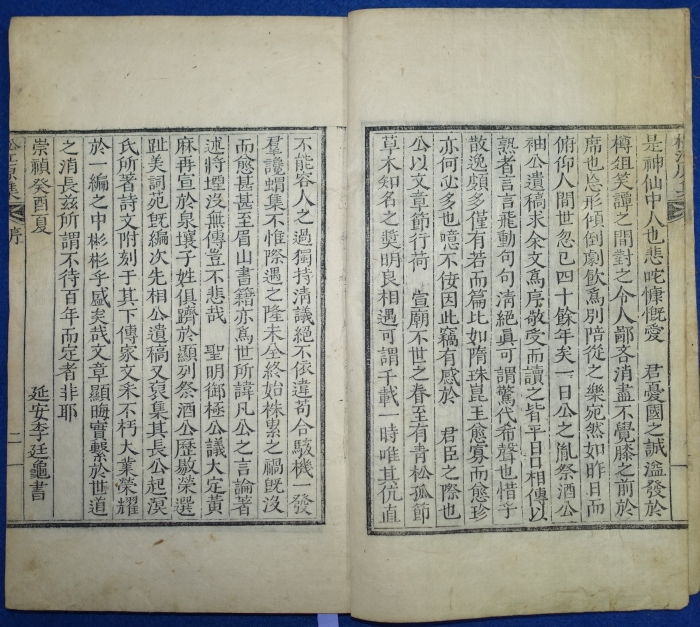 是神仙中人也悲咤慷慨愛 君憂國之誠溢發於
樽俎笑譚之間對之令人鄙吝消盡不覺膝之前於
席也忘形傾倒劇飮爲別陪從之樂宛然如昨日而
俯仰人間世忽已四十餘年矣一日公之胤祭酒公
袖公遺稿求余文爲序敬受而讀之皆平日口相傳以
熟者言言飛動句句淸絕眞可謂驚代希聲也惜乎
散逸頗多僅有若而篇比如隋珠崑玉愈寡而愈珍
亦何必多也噫不佞因此竊有感於 君臣之際也
公以文章節行荷 宣廟不世之眷至有靑松孤節
草木知名之奬明良相遇可謂千載一時唯其伉直
不能容人之過獨持淸議絕不依違苟合駭機一發
羣讒蝟集不惟際遇之隆未全終始株累之禍旣沒
而愈甚甚至眉山書籍亦爲世所諱凡公之言論著
述將堙沒無傳豈不悲哉 聖明御極公議大定黃
麻再宣於泉壤子姓俱躋於顯列祭酒公歷敭榮選
趾美詞苑旣編次先相公遺稿又裒集其長公起溟
氏所著詩文附刻于其下傳家文釆不朽大業榮耀
於一編之中彬彬乎盛矣哉文章顯晦實繫於世道
之消長玆所謂不待百年而定者非耶
崇禎癸酉夏 延安李廷龜書
序
二